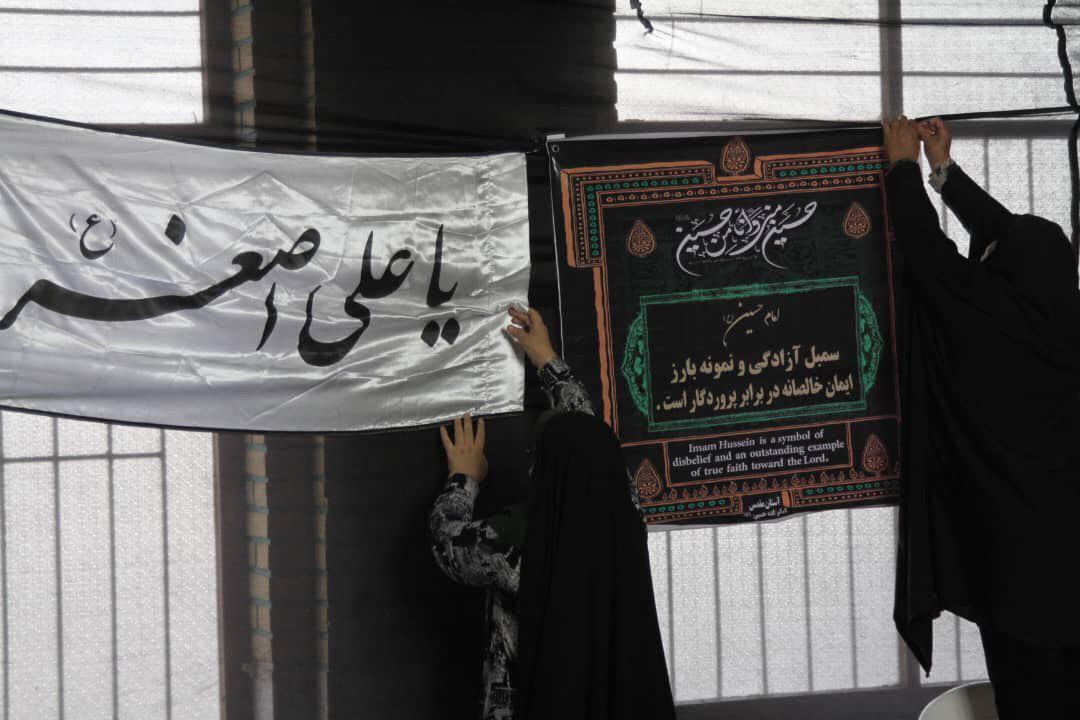 یا علی اصغر (ع)
حسین منی و أنا من حسین
امام حسین (ع)
سمبل آزادگی و نمونه بارز
ایمان خالصانه در برابر پروردگار است.
Imam Hussein is a symbol of
disbelief and an outstanding example
of true faith toward the Lord.
آستان مقدس